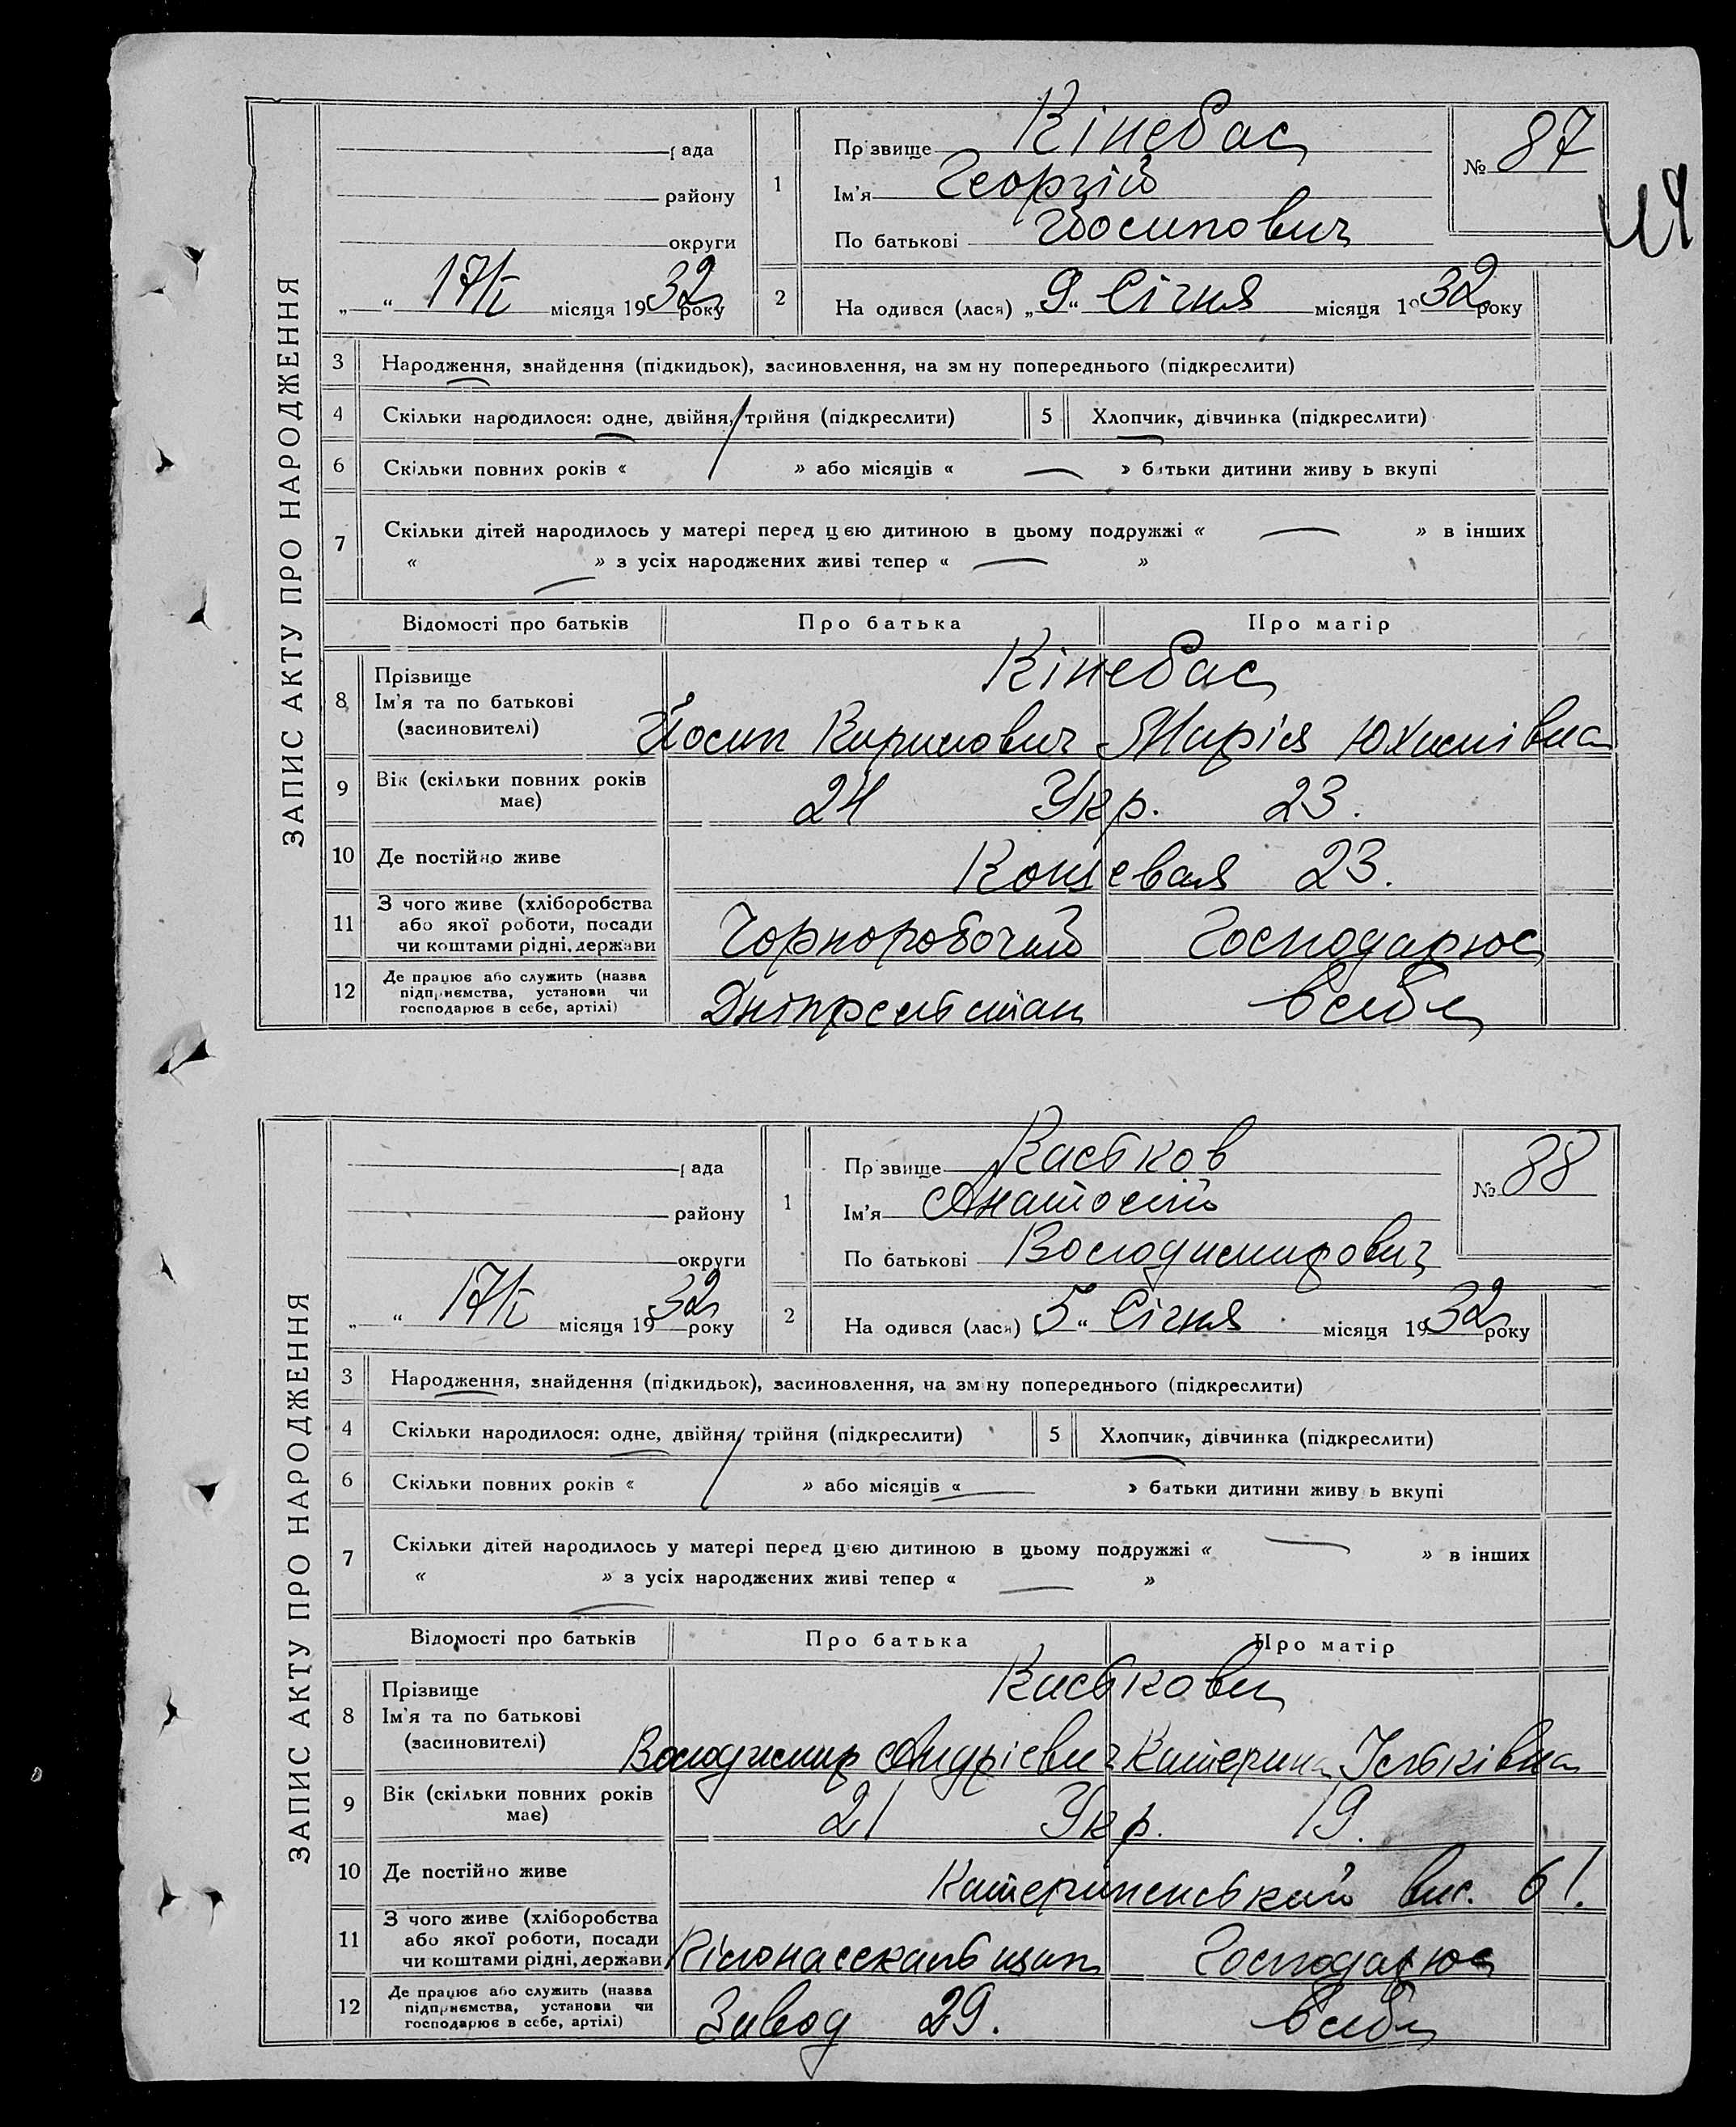 ЗАПИС АКТУ ПРО НАРОДЖЕННЯ
рада
району
округи
„ “ 17/I місяця 1932 року
1 Прізвище Кінебас
Ім'я Георгій
По батькові Йосипович
№ 87
2 На одився (лася) „9“ Січня місяця 1932 року
3 Народження, знайдення (підкидьок), засиновлення, на зм ну попереднього (підкреслити)
4 Скільки народилося: одне, двійня, трійня (підкреслити) 5 Хлопчик, дівчинка (підкреслити)
6 Скільки повних років « » або місяців « — » батьки дитини живу ь вкупі
7 Скільки дітей народилось у матері перед цією дитиною в цьому подружжі « — » в інших
« — » з усіх народжених живі тепер « — »
Відомості про батьків Про батька Про матір
8 Прізвище Кінебас
Ім'я та по батькові
(засиновителі) Йосип Кирилович Марія Юхимівна
9 Вік (скільки повних років
має) 24 Укр. 23.
10 Де постійно живе Кощевая 23.
11 З чого живе (хліборобства
або якої роботи, посади
чи коштами рідні, держави Чорноробочий Господарює
12 Де працює або служить (назва
підприємства, установи чи
господарює в себе, артілі) в себе
ЗАПИС АКТУ ПРО НАРОДЖЕННЯ
рада
району
округи
„ “ 17/I місяця 1932 року
1 Прізвище Каськов
Ім'я Анатолій
По батькові Володимирович
№ 88
2 На одився (лася) 5“ Січня місяця 1932 року
3 Народження, знайдення (підкидьок), засиновлення, на зміну попереднього (підкреслити)
4 Скільки народилося: одне, двійня, трійня (підкреслити) 5 Хлопчик, дівчинка (підкреслити)
6 Скільки повних років « » або місяців « — » батьки дитини живу ь вкупі
7 Скільки дітей народилось у матері перед цією дитиною в цьому подружжі « — » в інших
« — » з усіх народжених живі тепер « — »
Відомості про батьків Про батька Про матір
8 Прізвище Каськови
Ім'я та по батькові
(засиновителі) Володимир Андрієвич Катерина Ільківна
9 Вік (скільки повних років
має) 21 Укр. 19.
10 Де постійно живе Катериненський вис. 61.
11 З чого живе (хліборобства
або якої роботи, посади
чи коштами рідні, держави Господарює
12 Де працює або служить (назва
підприємства, установи чи
господарює в себе, артілі) Завод 29. в себе